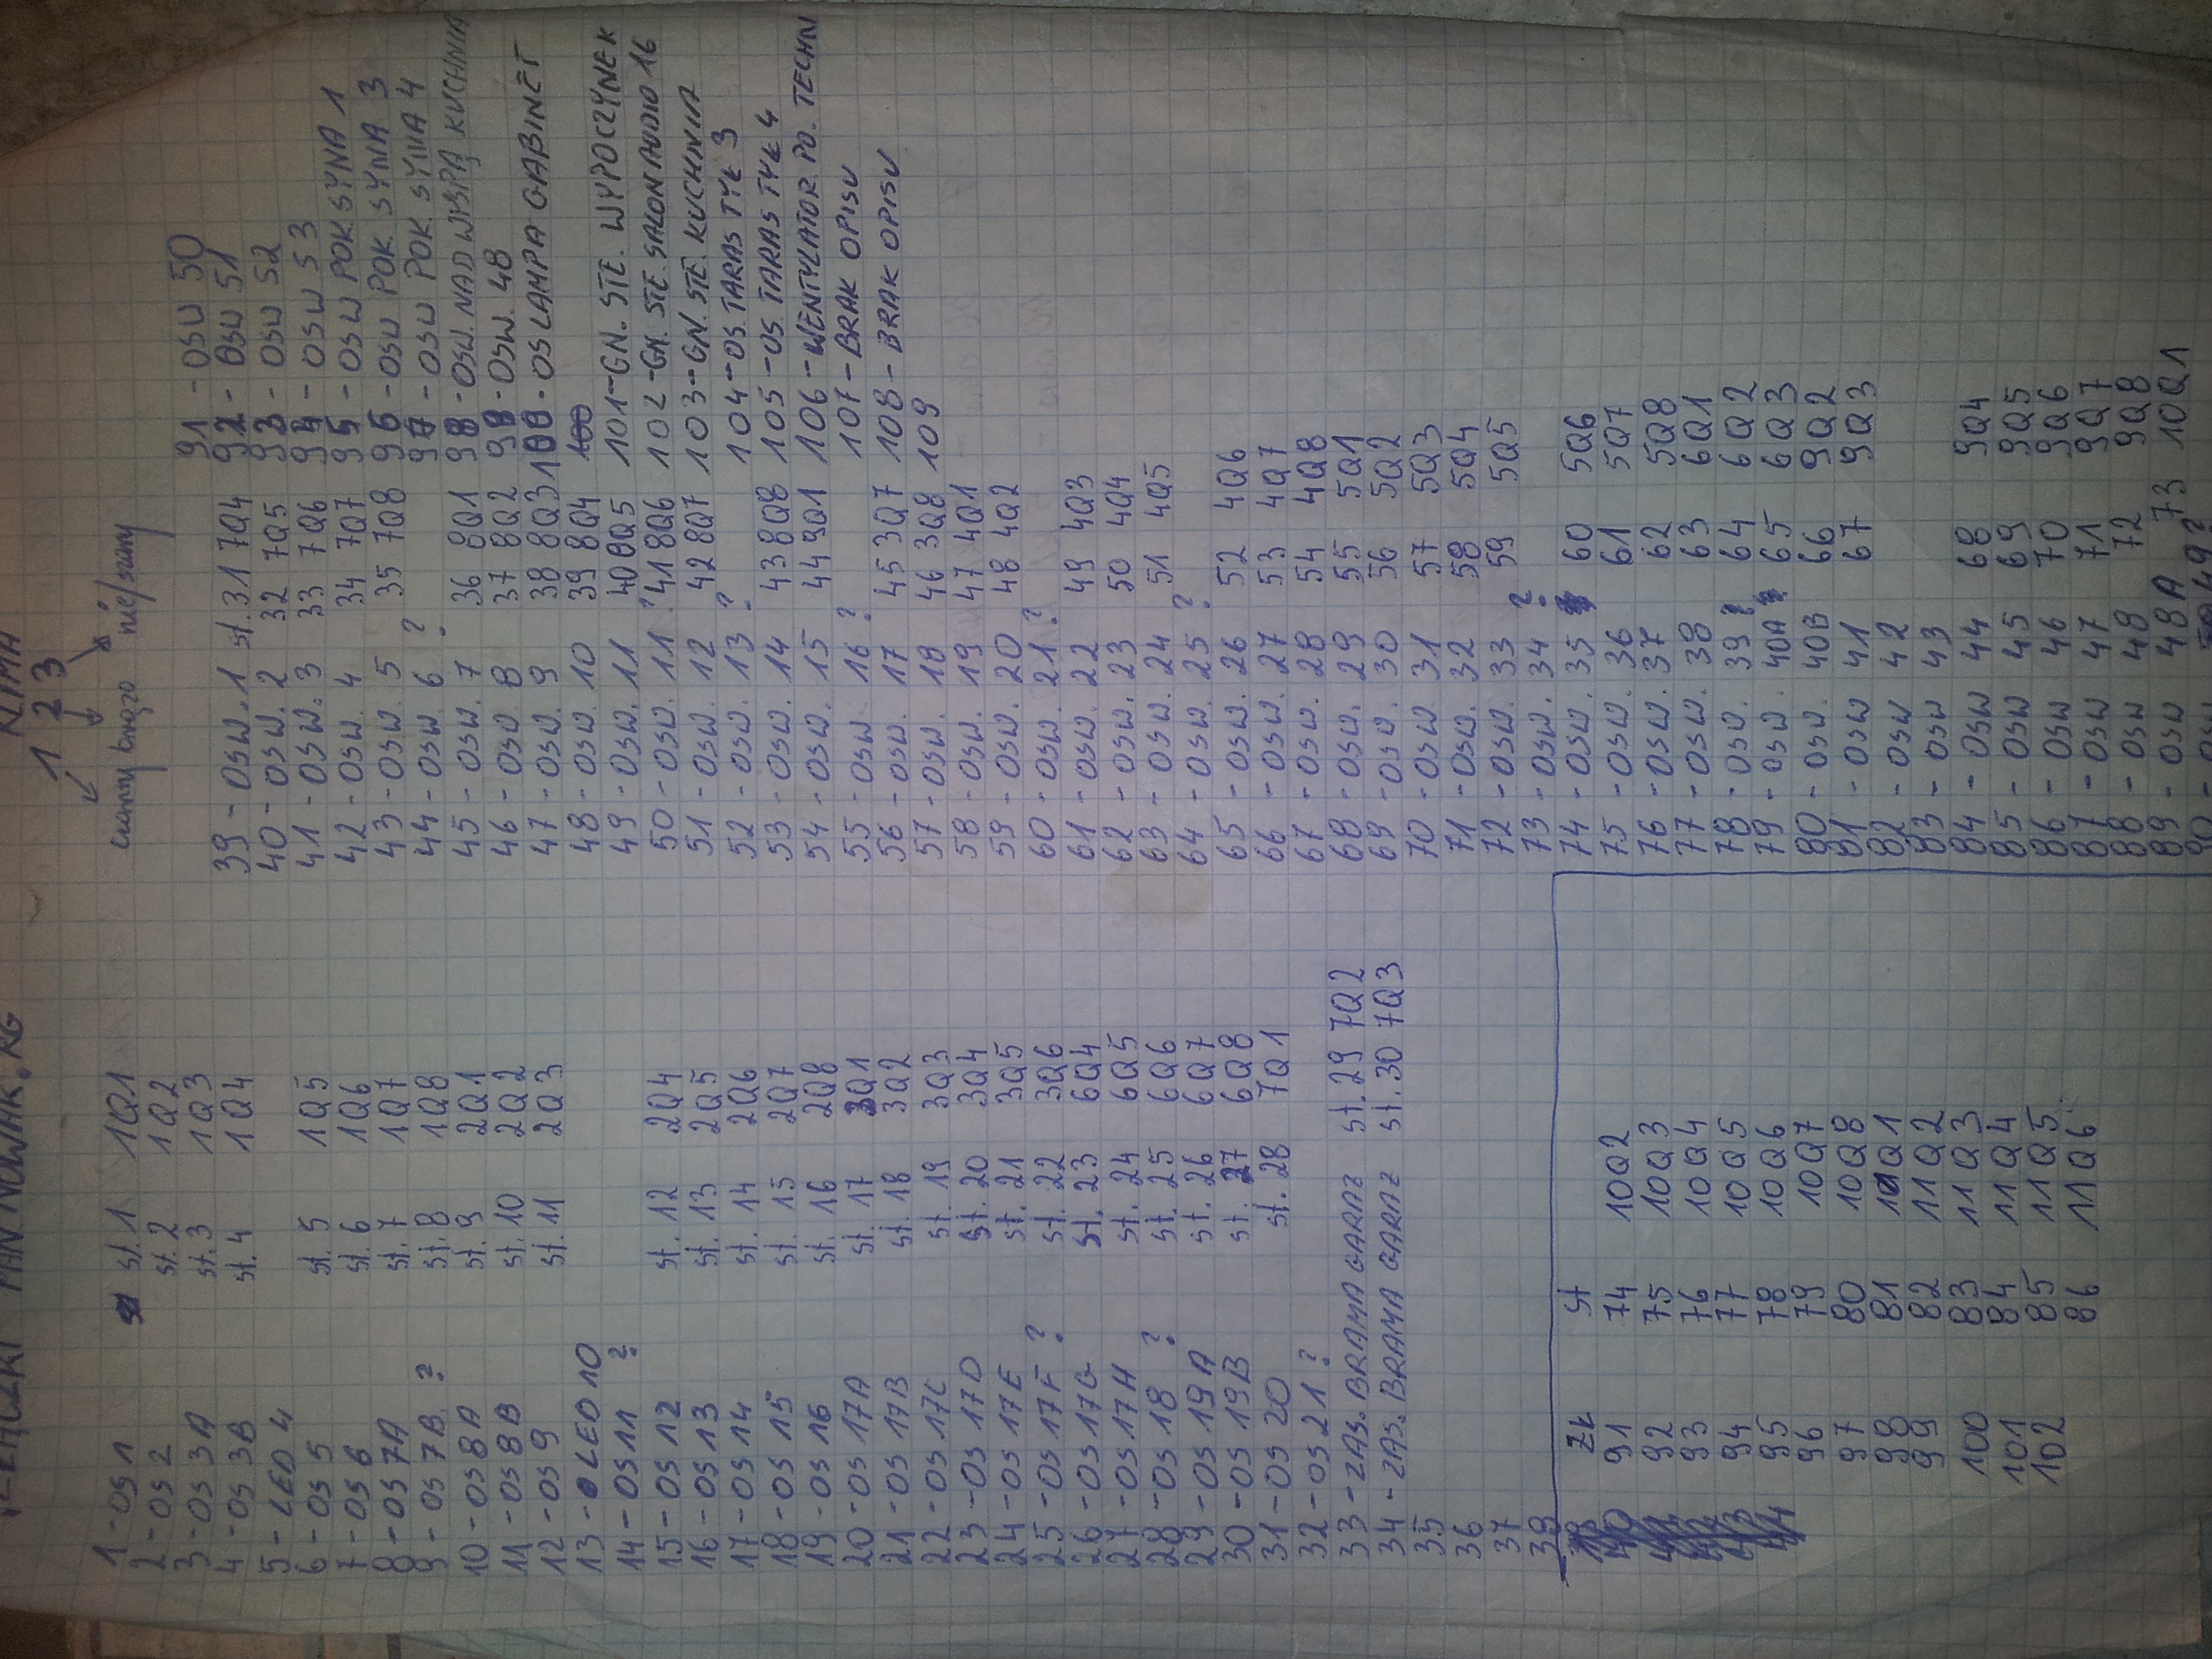 KLIMA
1 2 3
czarny brązo nie/szary
1 - OS 1 st. 1 1Q1
2 - OS 2 st. 2 1Q2
3 - OS 3A st. 3 1Q3
4 - OS 3B st. 4 1Q4
5 - LED 4
6 - OS 5 st. 5 1Q5
7 - OS 6 st. 6 1Q6
8 - OS 7A st. 7 1Q7
9 - OS 7B ? st. 8 1Q8
10 - OS 8A st. 9 2Q1
11 - OS 8B st. 10 2Q2
12 - OS 9 st. 11 2Q3
13 - LED 10
14 - OS 11 ?
15 - OS 12 st. 12 2Q4
16 - OS 13 st. 13 2Q5
17 - OS 14 st. 14 2Q6
18 - OS 15 st. 15 2Q7
19 - OS 16 st. 16 2Q8
20 - OS 17A st. 17 3Q1
21 - OS 17B st. 18 3Q2
22 - OS 17C st. 19 3Q3
23 - OS 17D st. 20 3Q4
24 - OS 17E st. 21 3Q5
25 - OS 17F ? st. 22 3Q6
26 - OS 17G st. 23 6Q4
27 - OS 17H st. 24 6Q5
28 - OS 18 ? st. 25 6Q6
29 - OS 19A st. 26 6Q7
30 - OS 19B st. 27 6Q8
31 - OS 20 st. 28 7Q1
32 - OS 21 ?
33 - ZAS. BRAMA GARAZ st. 29 7Q2
34 - ZAS. BRAMA GARAZ st. 30 7Q3
35
36
37
39
ZŁ st
91 74 10Q2
92 75 10Q3
93 76 10Q4
94 77 10Q5
95 78 10Q6
96 79 10Q7
97 80 10Q8
98 81 11Q1
99 82 11Q2
100 83 11Q3
101 84 11Q4
102 85 11Q5
86 11Q6
39 - OSW. 1 st. 31 7Q4
40 - OSW. 2 32 7Q5
41 - OSW. 3 33 7Q6
42 - OSW. 4 34 7Q7
43 - OSW. 5 35 7Q8
44 - OSW. 6 ?
45 - OSW. 7 36 8Q1
46 - OSW. 8 37 8Q2
47 - OSW. 9 38 8Q3
48 - OSW. 10 39 8Q4
49 - OSW. 11 40 8Q5
50 - OSW. 11 ? 41 8Q6
51 - OSW. 12 42 8Q7
52 - OSW. 13 ?
53 - OSW. 14 43 8Q8
54 - OSW. 15 44 9Q1
55 - OSW. 16 ?
56 - OSW. 17 45 3Q7
57 - OSW. 18 46 3Q8
58 - OSW. 19 47 4Q1
59 - OSW. 20 48 4Q2
60 - OSW. 21 ?
61 - OSW. 22 49 4Q3
62 - OSW. 23 50 4Q4
63 - OSW. 24 51 4Q5
64 - OSW. 25 ?
65 - OSW. 26 52 4Q6
66 - OSW. 27 53 4Q7
67 - OSW. 28 54 4Q8
68 - OSW. 29 55 5Q1
69 - OSW. 30 56 5Q2
70 - OSW. 31 57 5Q3
71 - OSW. 32 58 5Q4
72 - OSW. 33 59 5Q5
73 - OSW. 34 ?
74 - OSW. 35 60 5Q6
75 - OSW. 36 61 5Q7
76 - OSW. 37 62 5Q8
77 - OSW. 38 63 6Q1
78 - OSW. 39 64 6Q2
79 - OSW. 40A 65 6Q3
80 - OSW. 40B 66 9Q2
81 - OSW 41 67 9Q3
82 - OSW 42
83 - OSW 43
84 - OSW 44 68 9Q4
85 - OSW 45 69 9Q5
86 - OSW 46 70 9Q6
87 - OSW 47 71 9Q7
88 - OSW 48 72 9Q8
89 - OSW 48A 73 10Q1
91 - OSW 50
92 - OSW 51
93 - OSW 52
94 - OSW 53
95 - OSW POK. SYNA 1
96 - OSW POK. SYNA 3
97 - OSW POK. SYNA 4
98 - OSW. NAD WYSPĄ KUCHNIA
99 - OSW. 48
100 - OS LAMPA GABINET
100
101 - GN. STE. WYPOCZYNEK
102 - GN. STE. SALON AUDIO 16
103 - GN. STE. KUCHNIA
104 - OS. TARAS TYŁ 3
105 - OS. TARAS TYŁ 4
106 - WENTYLATOR. PO. TECHN
107 - BRAK OPISU
108 - BRAK OPISU
109